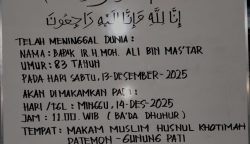 إِنَّا لِلَّهِ وَإِنَّا إِلَيْهِ رَاجِعُونَ
TELAH MENINGGAL DUNIA :
NAMA : BAPAK IR. H. MOH. ALI BIN MAS'TAR
UMUR : 83 TAHUN
PADA HARI SABTU, 13-DESEMBER-2025
AKAN DIMAKAMKAN PADA :
HARI /TGL : MINGGU, 14-DES-2025
JAM : 12.00 WIB ( BA'DA DHUHUR )
TEMPAT : MAKAM MUSLIM HUSNUL KHOTIMAH
PATEMON - GUNUNG PATI